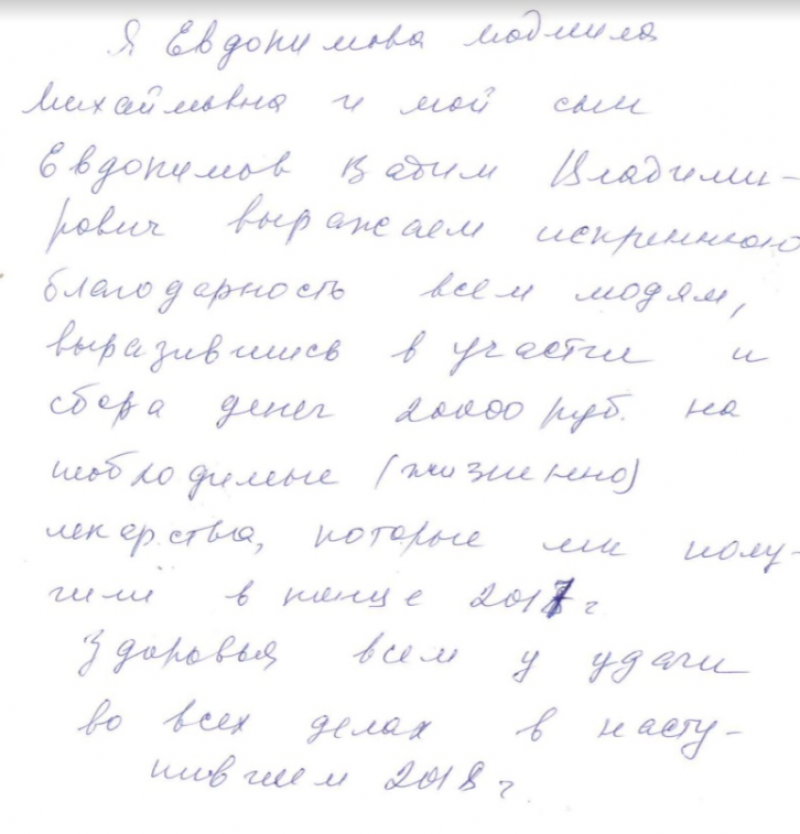 Я Евдокимова Людмила
Михайловна и мой сын
Евдокимов Вадим Владими-
рович выражаем искреннюю
благодарность всем людям,
выразившись в участии и
сбора денег 20000 руб. на
необходимые (жизненно)
лекарства, которые мы полу-
чили в конце 2017 г
Здоровья всем и удачи
во всех делах в насту-
пившем 2018 г.